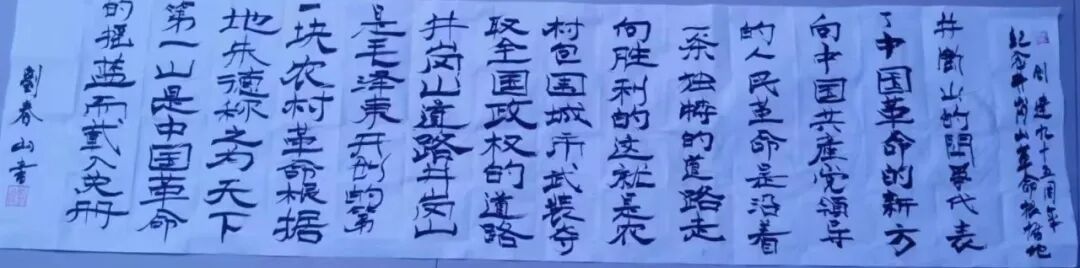 纪念井冈山革命根据地
创建九十五周年
井岗山的鬥争代表
了中国革命的新方
向中国共产党领导
的人民革命是沿着
一条独特的道路走
向胜利的这就是农
村包围城市武装夺
取全国政权的道路
井岗山道路井岗山
是毛泽东开创的第
一块农村革命根据
地朱德称之为天下
第一山是中国革命
的摇蓝而载入史册
劉春山书